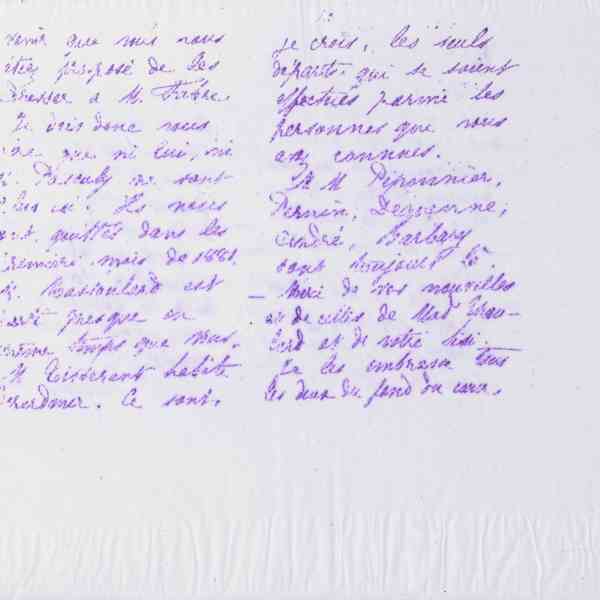 que vous vous
étiez proposé de les
adresser à M. Fabre.
Je dois donc vous
dire que ni lui, ni
M. Pascaly ne sont
plus ici. Ils nous
ont quittés dans les
premiers mois de 1881.
M. est
parti presque en
même temps que vous.
M Tisserant habite
Gérardmer. Ce sont,
je crois, les seuls
départs qui se soient
effectués parmi les
personnes que vous
ayez connues.
M M Pironnier,
Pernin,
André, Barbary
sont toujours là
– Merci de vos nouvelles
et de celles de Mad
et de votre
Je les embrasse tous
les deux du fond du cœur.